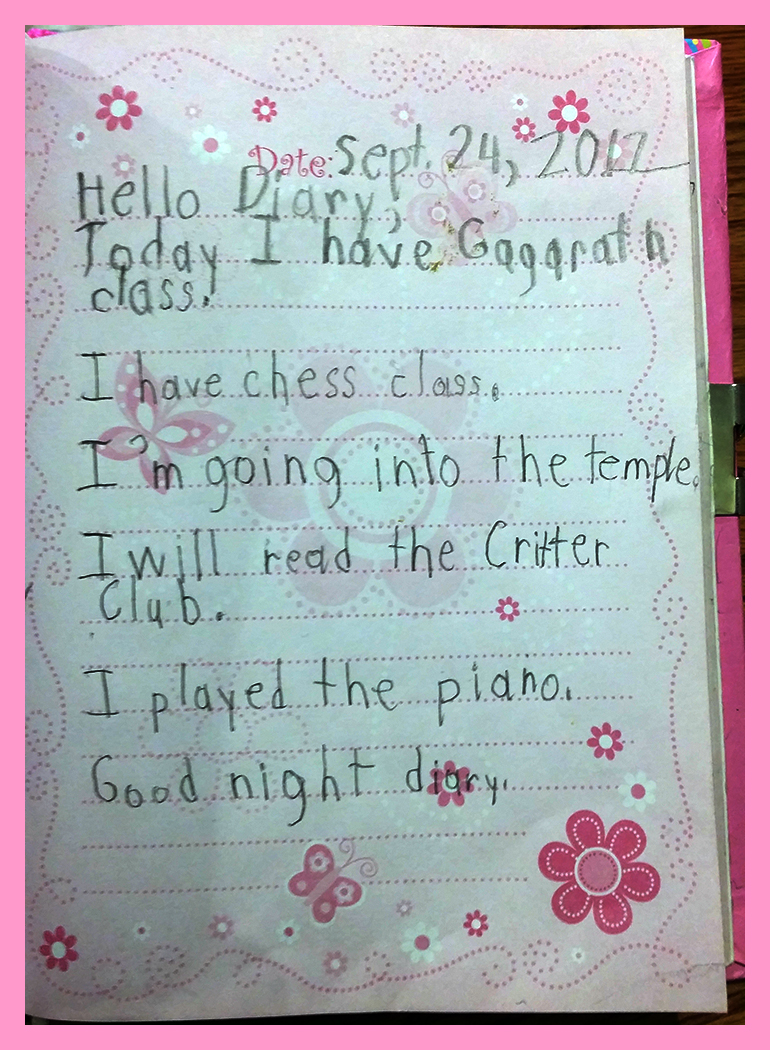 Date: Sept. 24, 2012
Hello Diary,
Today I have Gagarath
class.
I have chess class.
I'm going into the temple.
I will read the Critter
Club.
I played the piano.
Good night diary.